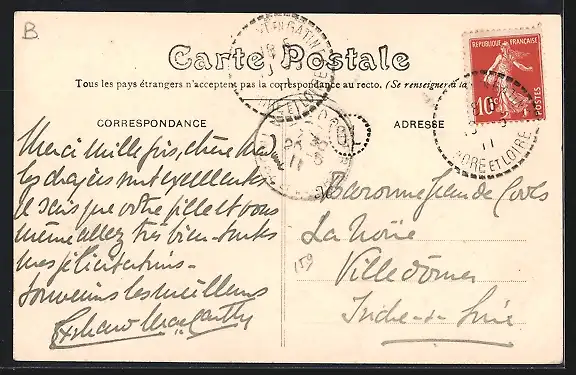 B.
Carte Postale
Tous les pays étrangers n'acceptent pas la correspondance au recto. (Se renseigner à la
CORRESPONDANCE
Merci mille fois, chère
les dragées sont excellentes
Je sais que votre fille et vous
même allez très bien - toutes
mes félicitations -
Souvenirs les meilleurs
Mac Carthy
ADRESSE
Baronne Jean de
La
Villedômer
Indre-et-Loire
159
REPUBLIQUE FRANÇAISE
10c
POSTES
INDRE ET LOIRE
11